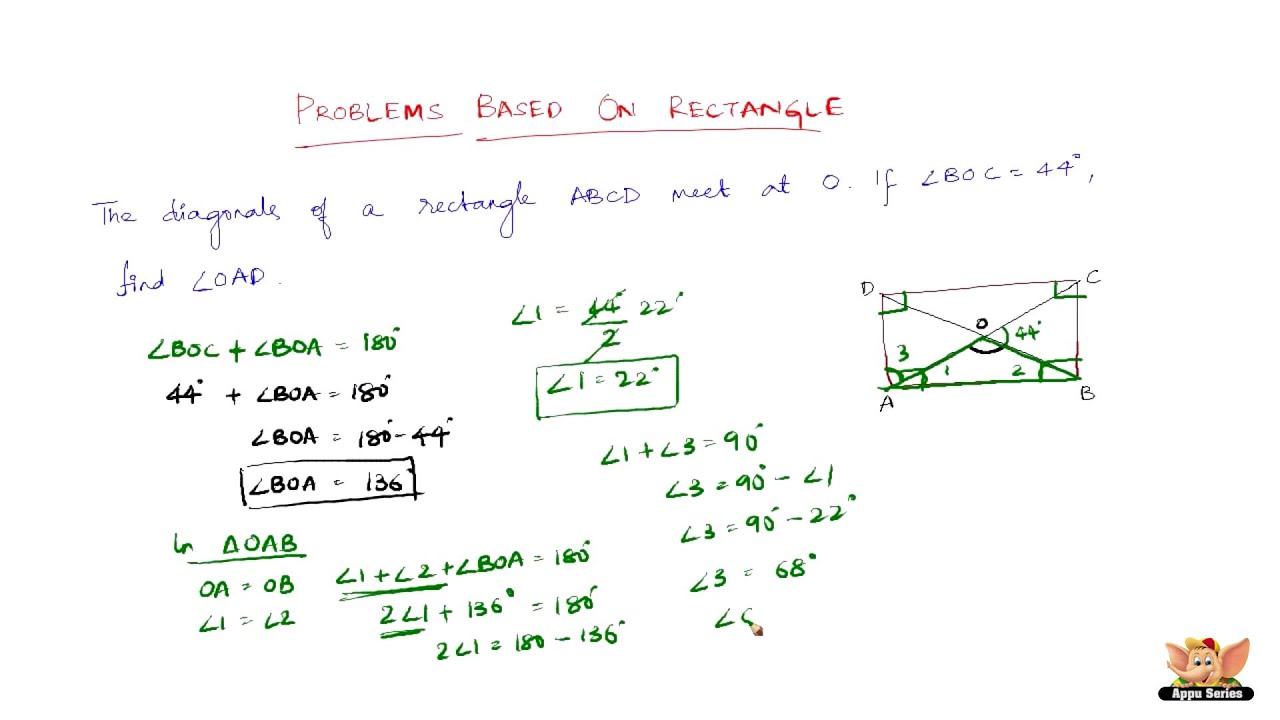 PROBLEMS BASED ON RECTANGLE
The diagonals of a rectangle ABCD meet at O. If ∠BOC = 44°,
find ∠OAD.
∠BOC + ∠BOA = 180°
44° + ∠BOA = 180°
∠BOA = 180° - 44°
∠BOA = 136°
In ΔOAB
OA = OB
∠1 = ∠2
∠1 + ∠2 + ∠BOA = 180°
2∠1 + 136° = 180°
2∠1 = 180 - 136°
∠1 = 44°/2 22°
∠1 = 22°
∠1 + ∠3 = 90°
∠3 = 90° - ∠1
∠3 = 90° - 22°
∠3 = 68°
D
C
O
44°
3
1
2
A
B
Appu Series